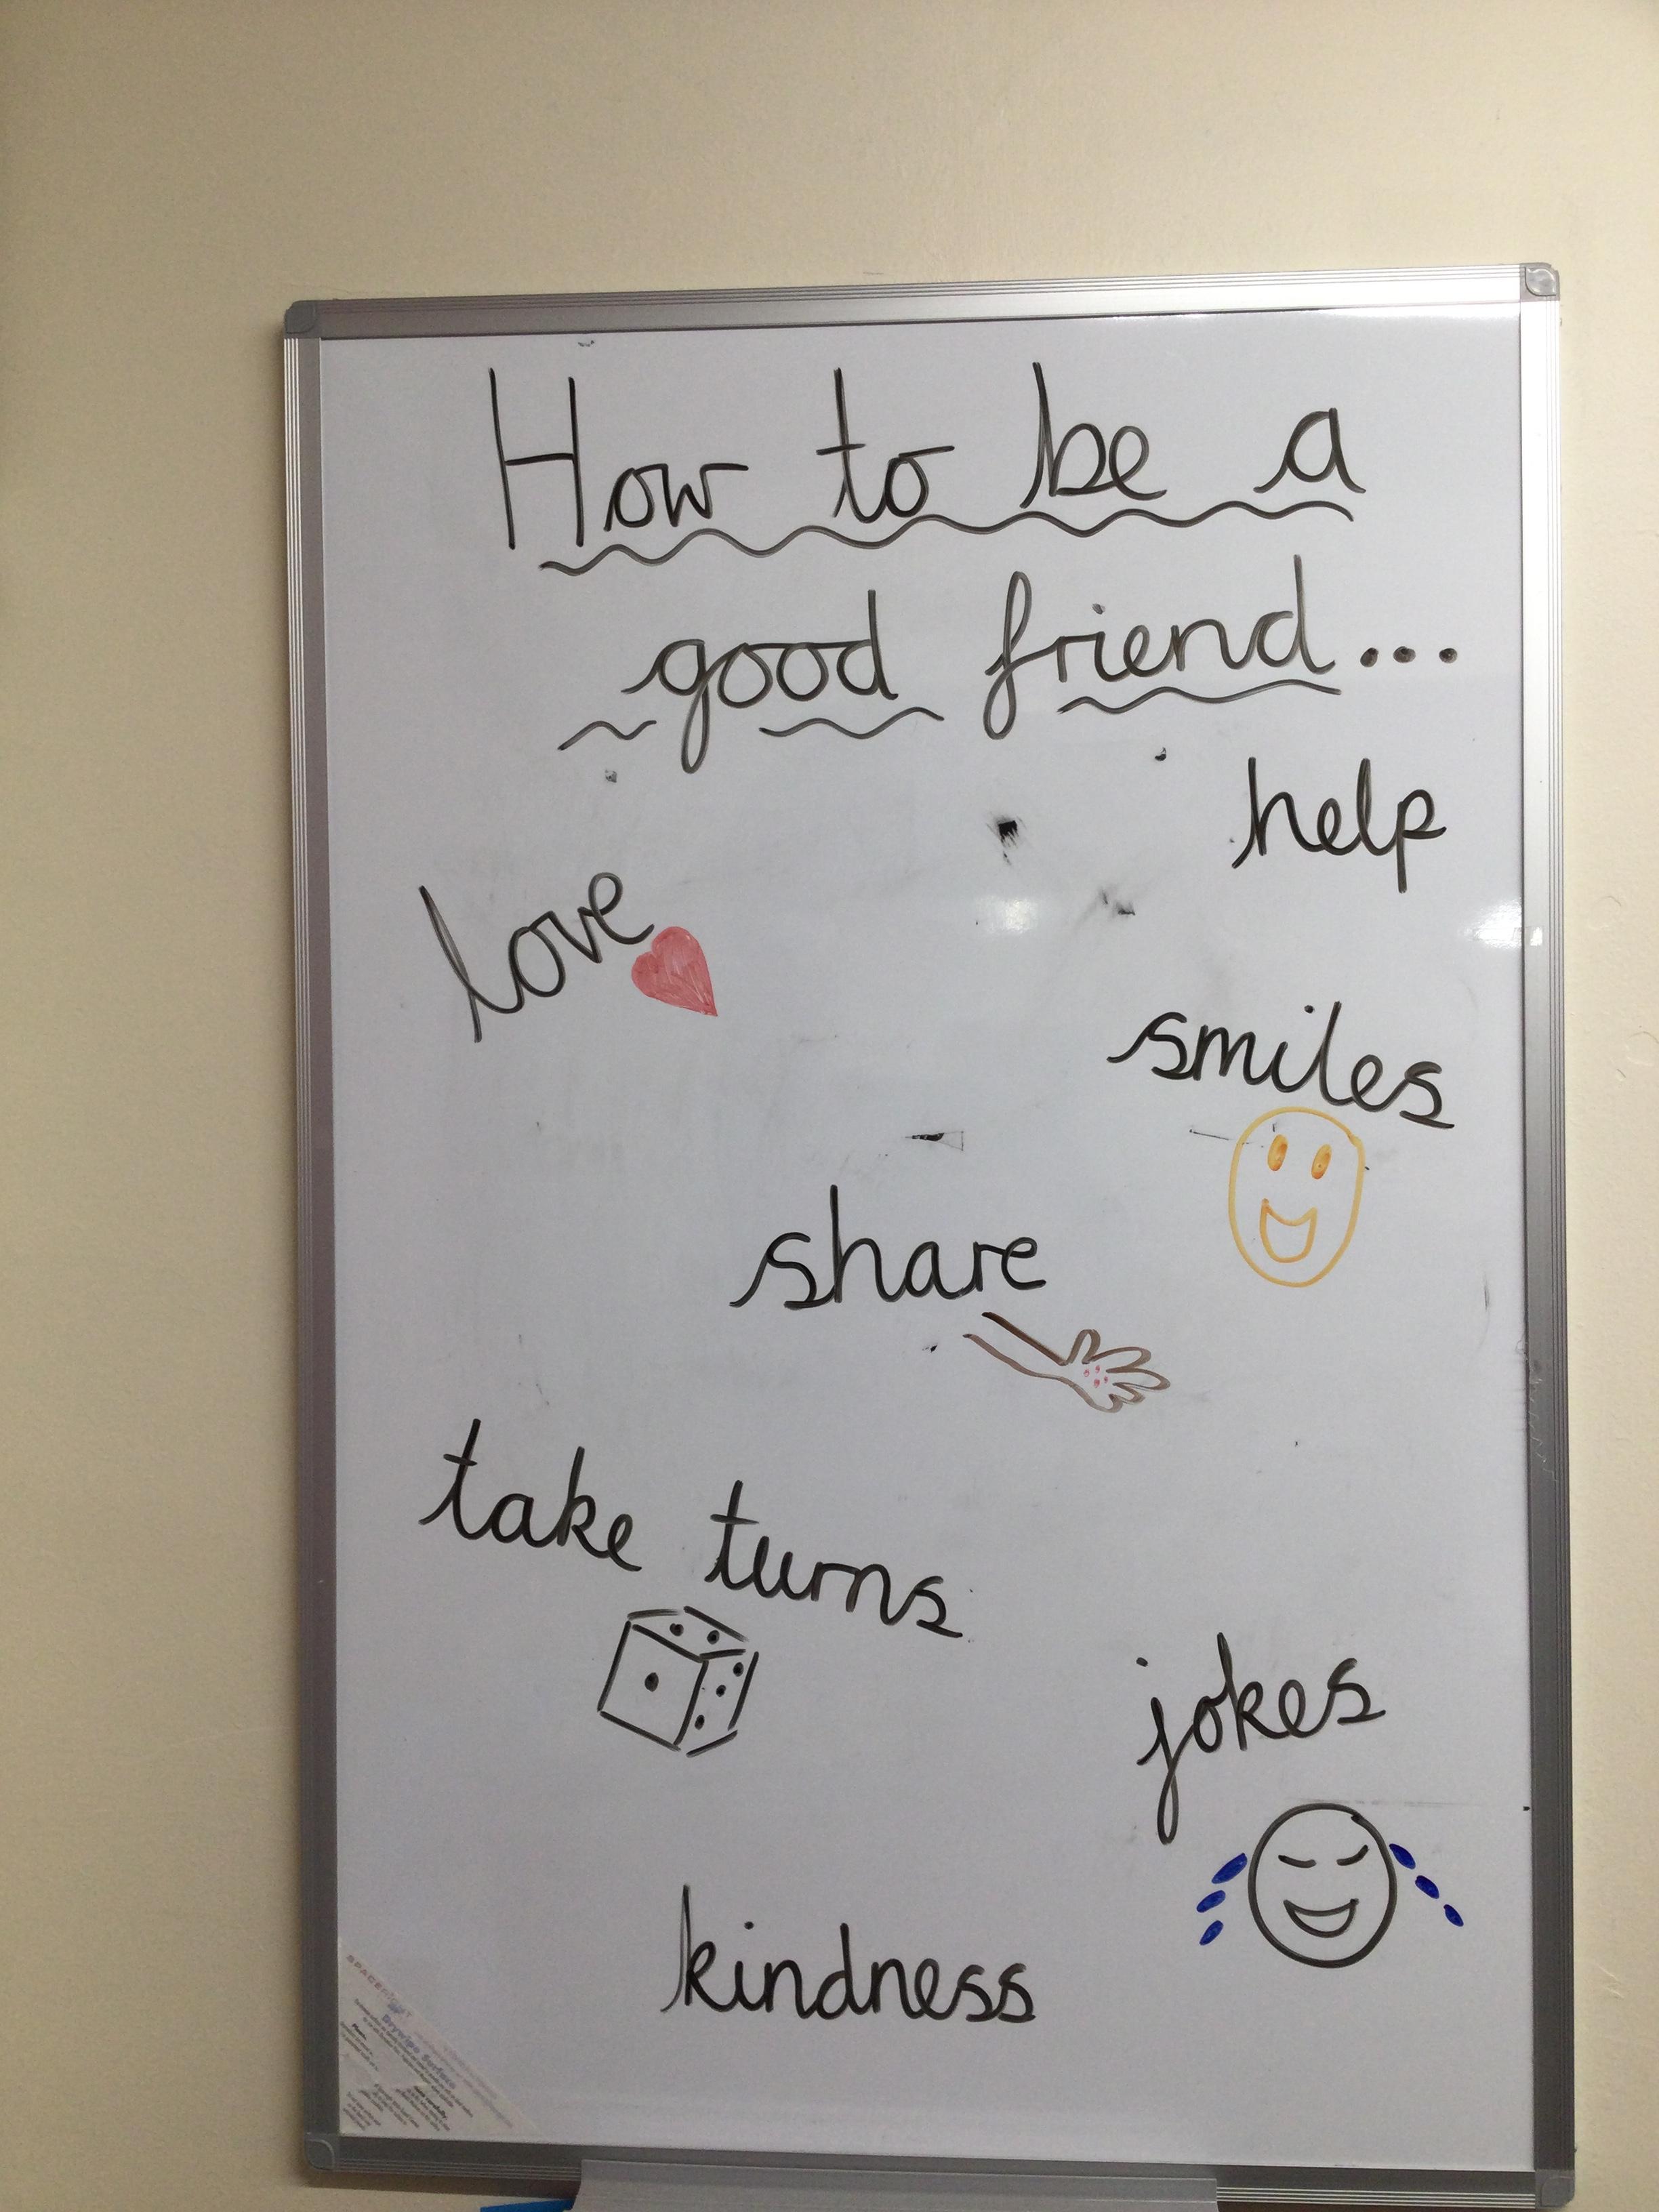 How to be a
good friend...
help
love
smiles
share
take turns
jokes
kindness
Drywipe Surface